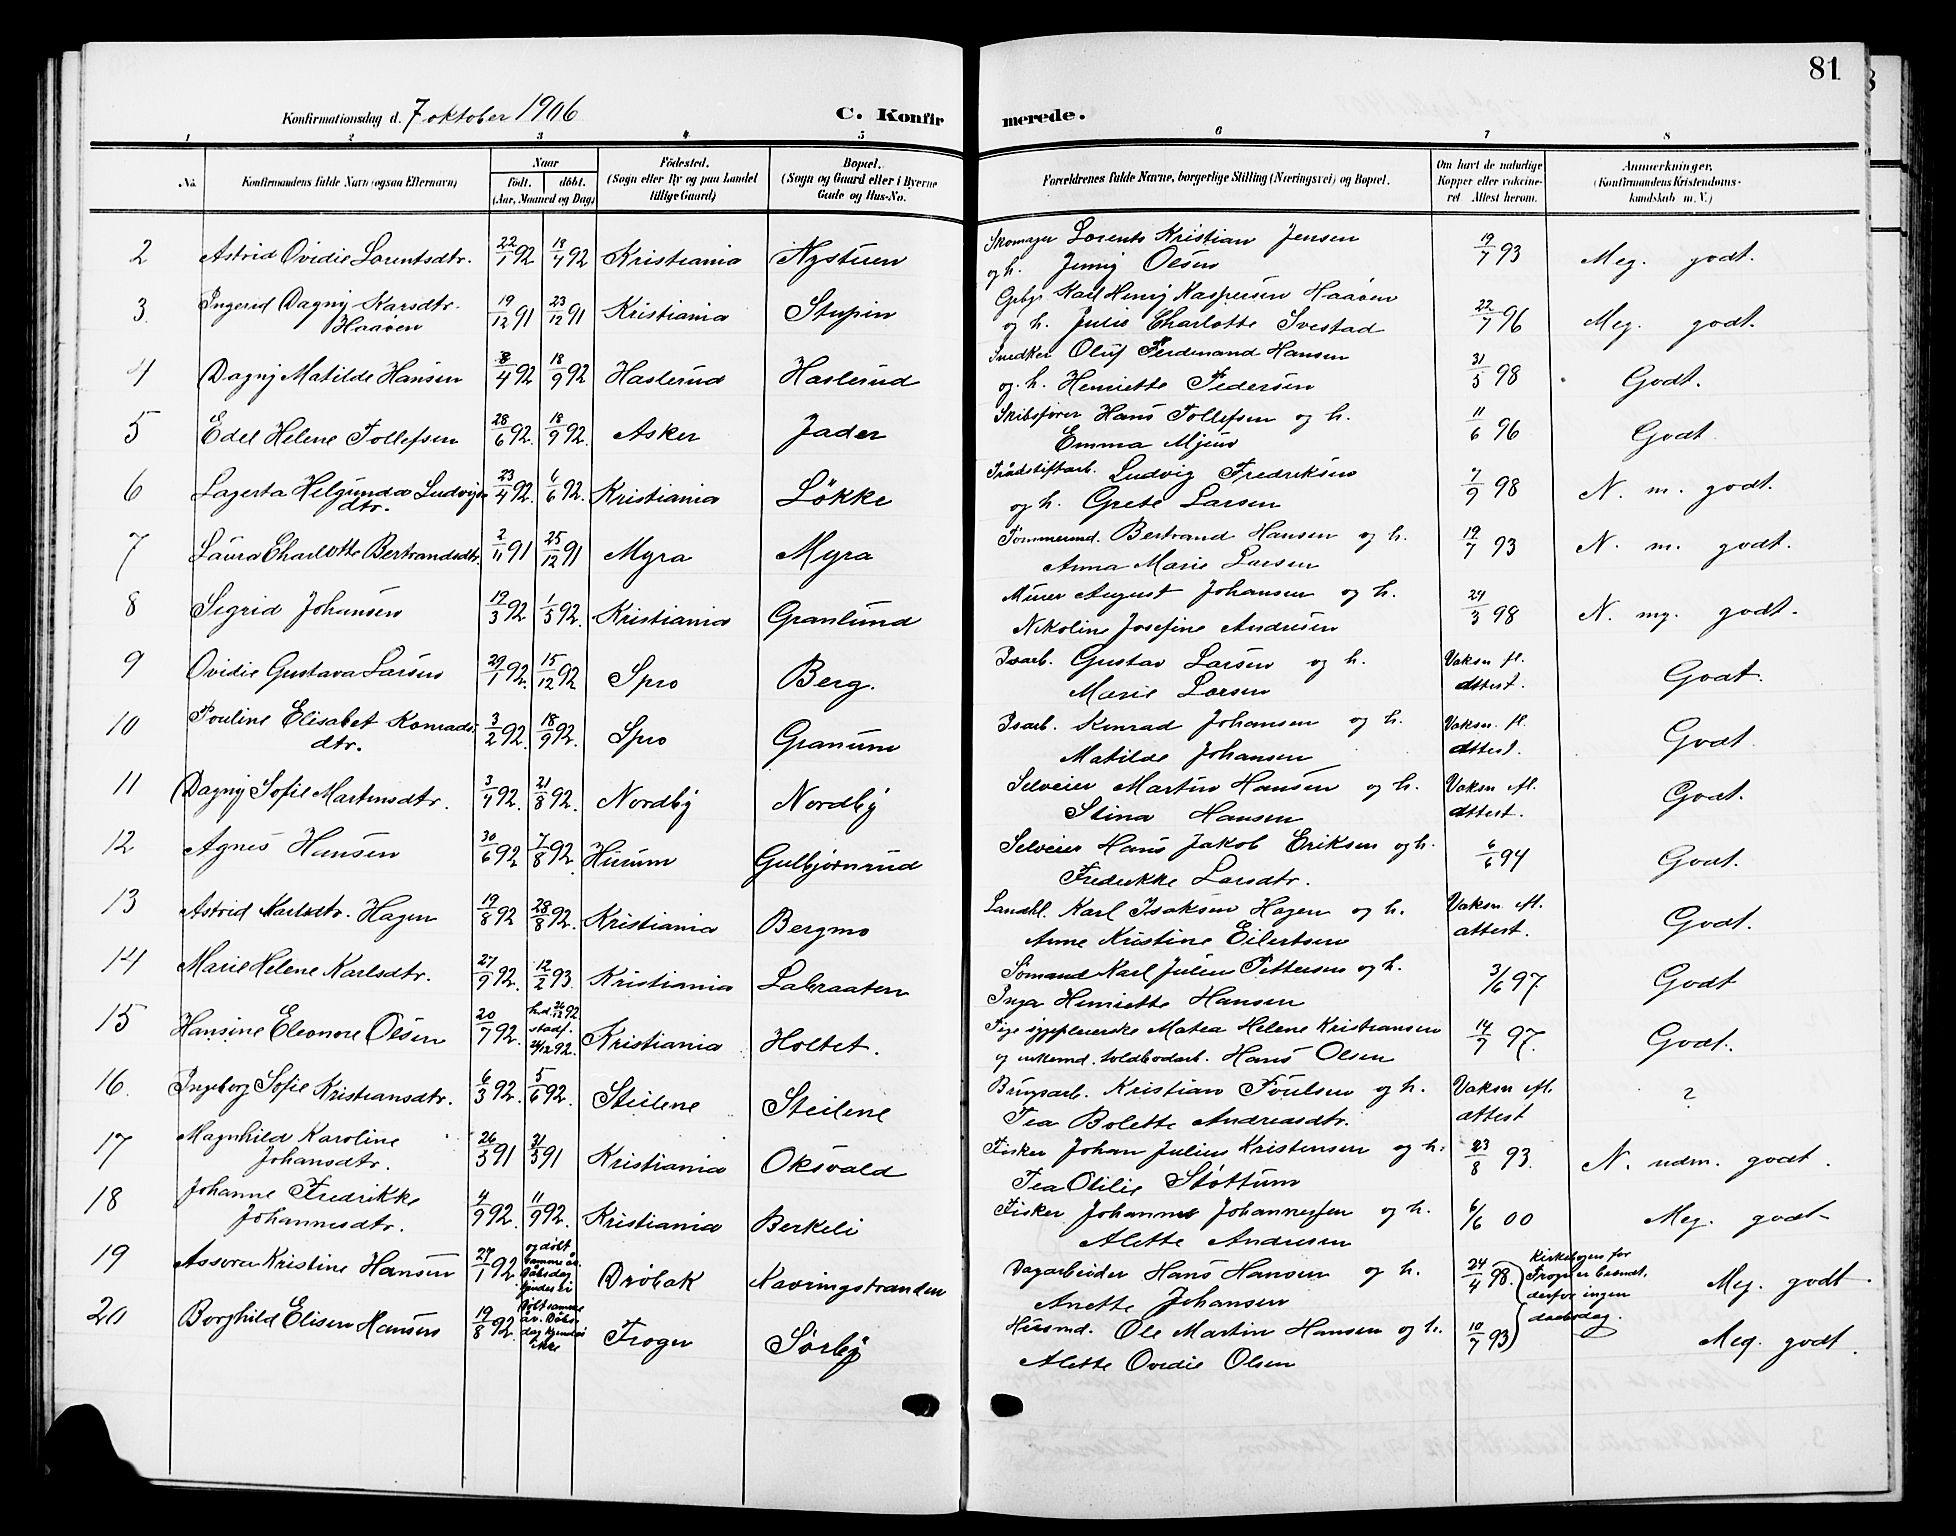 81
Konfirmationsdag d. 7 oktober 1906
C. Konfir merede.
1 2 3 4 5 6 7 8
No.
Konfirmandens fulde Navn (ogsaa Efternavn)
Naar
født. døbt.
(Aar, Maaned og Dag)
Fødested.
(Sogn eller By og paa Landet
tillige Gaard)
Bopæl.
(Sogn og Gaard eller i Byerne
Gade og Hus-No.
Forældrenes fulde Navne, borgerlige Stilling (Næringsvei) og Bopæl.
Om havt de naturlige
Kopper eller vakcine-
ret Attest herom.
Anmerkninger.
(Konfirmandens Kristendoms-
kundskab m. V.)
2 Astrid Ovidie Lorentsdtr. 22/1 92 18/4 92 Kristiania Nysturen Skomager Lorents Kristian Jensen 19/7 93 Meg. godt.
og h. Jenny Olsen
3 Ingerid Dagny Karsdtr. 19/12 91 23/12 91 Kristiania Stupin Karl Henry Kaspersen Haaven 22/7 96 Meg. godt.
Haaven og h. Julie Charlotte Svestad
4 Dagny Matilde Hansen 8/4 92 18/9 92 Haslerud Haslerud Snedker Oluf Ferdinand Hansen 31/5 98 Godt.
og h. Henriette Pedersen
5 Edel Helene Tollefsen 28/6 92. 18/9 92. Asker Jader Skibsfører Hans Tollefsen og h. 11/6 96 Godt
Emma
6 Lagerta Helgunda Ludvigs 23/4 92. 6/6 92. Kristiania Løkke Trådstiftarb. Ludvig Fredriksen 7/9 98 N. m. godt.
dtr. og h. Grete Larsen
7 Laura Charlotte Bertrandsdtr. 2/11 91 25/12 91 Myra Myra Tømmermd. Bertrand Hansen og h. 19/7 93 N. m. godt.
Anna Marie Larsen
8 Sigrid Johansen 19/3 92 1/5 92. Kristiania Granlund Murer August Johansen og h. 24/3 98 N. mg. godt.
Nikoline Josefine Andresen
9 Ovidie Gustava Larsen 29/1 92. 15/12 92 Spro Berg. Isarb. Gustav Larsen og h. Vaksn fl.
Marie Larsen attest. Godt.
10 Pouline Elisabet Konrads 3/2 92. 18/9 92. Spro Granum Isarb. Konrad Johansen og h. Vaksn. fl.
dtr. Matilde Johansen attest. Godt.
11 Dagny Sofie Martinsdtr. 3/4 92. 21/8 92. Nordby Nordby Selveier Martin Hansen og h. Vaksn efl.
Stina Hansen attest. Godt.
12 Agnes Hansen 30/6 92 7/8 92. Hurum Gulbjørnrud Selveier Hans Jakob Eriksen og h. 6/6 94 Godt.
Fredrikke Larsdtr.
13 Astrid Karlsdtr. Hagen 19/8 92 28/8 92. Kristiania Bergmo Landhl. Karl Isaksen Hagen og h. Vaksn efl.
Anne Kristine Eilertsen attest. Godt.
14 Marie Helene Karlsdtr. 27/9 92. 12/2 93. Kristiania Labraaten Sømand Karl Julius Pettersen og h. 3/6 97 Godt
Inga Henriette Hansen
15 Hansine Eleonore Olsen 20/7 92. h.d. 26/12 92 stadf. 26/12 92. Kristiania Holtet. Pige sygepleierske Matea Helene Kristiansen 14/7 97. Godt.
og unkemd. toldbodarb. Hans Olsen
16. Ingeborg Sofie Kristiansdtr. 6/3 92. 5/6 92. Steilene Steilene Brugsarb. Kristian Poulsen og h. Vaksn efl. ?
Tea Bolette Andreasdtr. attest
17 Magnhild Karoline 26/3 91 31/5 91 Kristiania Oksvald Fisker Johan Julius Kristensen og h. 23/8 93. N. udm. godt.
Johansdtr. Tea Otilie Støttum
18 Johanne Fredrikke 4/9 92. 11/9 92. Kristiania Berkeli Fisker Johannes Johannessen og h. 6/6 00 Meg. godt
Johannesdtr. Alette Andresen
19 Assora Kristine Hansen 27/1 92. og døbt samme år. Dåbsdag kjendes ei Drøbak Navringstranden Dagarbeider Hans Hansen og h. 24/4 98. Kirkebogen for Meg. godt
Anette Johansen Frogner brændt. derfor ingen
20 Borghild Elisen Hansen 19/8 92. Døbt samme år. Dåbsdag kjendes ikke Froger Sørby Husmd. Ole Martin Hansen og h. 10/7 93 daabsdag. Meg. godt.
Alette Ovedie Olsen